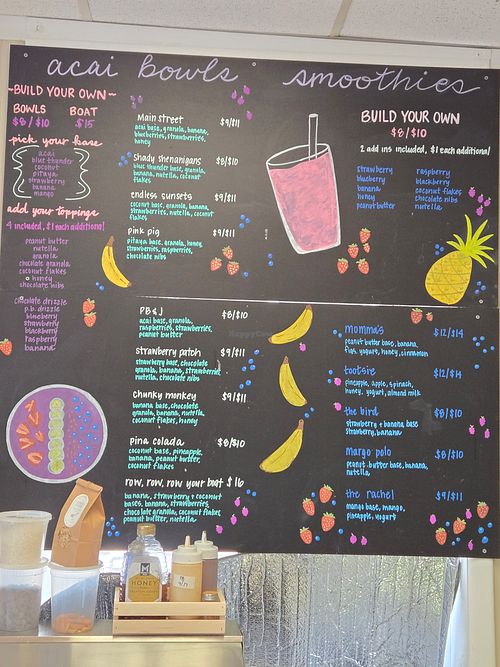 acai bowls
~BUILD YOUR OWN~
BOWLS BOAT
$8/$10 $15
pick your base
acai
blue thunder
coconut
pitaya
strawberry
banana
mango
add your toppings
4 included, $1 each additional
peanut butter
nutella
granola
chocolate granola
coconut flakes
honey
chocolate nibs
chocolate drizzle
p.b. drizzle
blueberry
strawberry
blackberry
raspberry
banana
Main street $9/$11
acai base, granola, banana,
blueberries, strawberries,
honey
Shady shenanigans $8/$10
blue thunder base, granola,
banana, nutella, coconut
flakes
endless sunsets $9/$11
coconut base, granola, banana,
strawberries, nutella, coconut
flakes
pink pig $9/$11
pitaya base, granola, honey
strawberries, raspberries,
chocolate nibs
PB&J $8/$10
acai base, granola,
raspberries, strawberries,
peanut butter
strawberry patch $9/$11
strawberry base, chocolate
granola, banana, strawberries
nutella, chocolate nibs
chunky monkey $9/$11
banana base, chocolate
granola, banana, nutella,
coconut flakes, honey
pina colada $8/$10
coconut base, pineapple,
banana, peanut butter,
coconut flakes
row, row, row your boat $16
banana, strawberry & coconut
bases, banana, strawberries,
chocolate granola, coconut flakes
peanut butter, nutella
smoothies
BUILD YOUR OWN
$8/$10
2 add ins included, $1 each additional
strawberry
blueberry
banana
honey
peanut butter
raspberry
blackberry
coconut flakes
chocolate nibs
nutella
momma's $12/$14
peanut butter base, banana,
flax, yogurt, honey, cinnamon
tootsie $12/$14
pineapple, apple, spinach,
honey, yogurt, almond milk
the bird $8/$10
strawberry & banana base
strawberry, banana
margo polo $8/$10
peanut butter base, banana,
nutella
the rachel $9/$11
mango base, mango,
pineapple, yogurt
M
HONEY